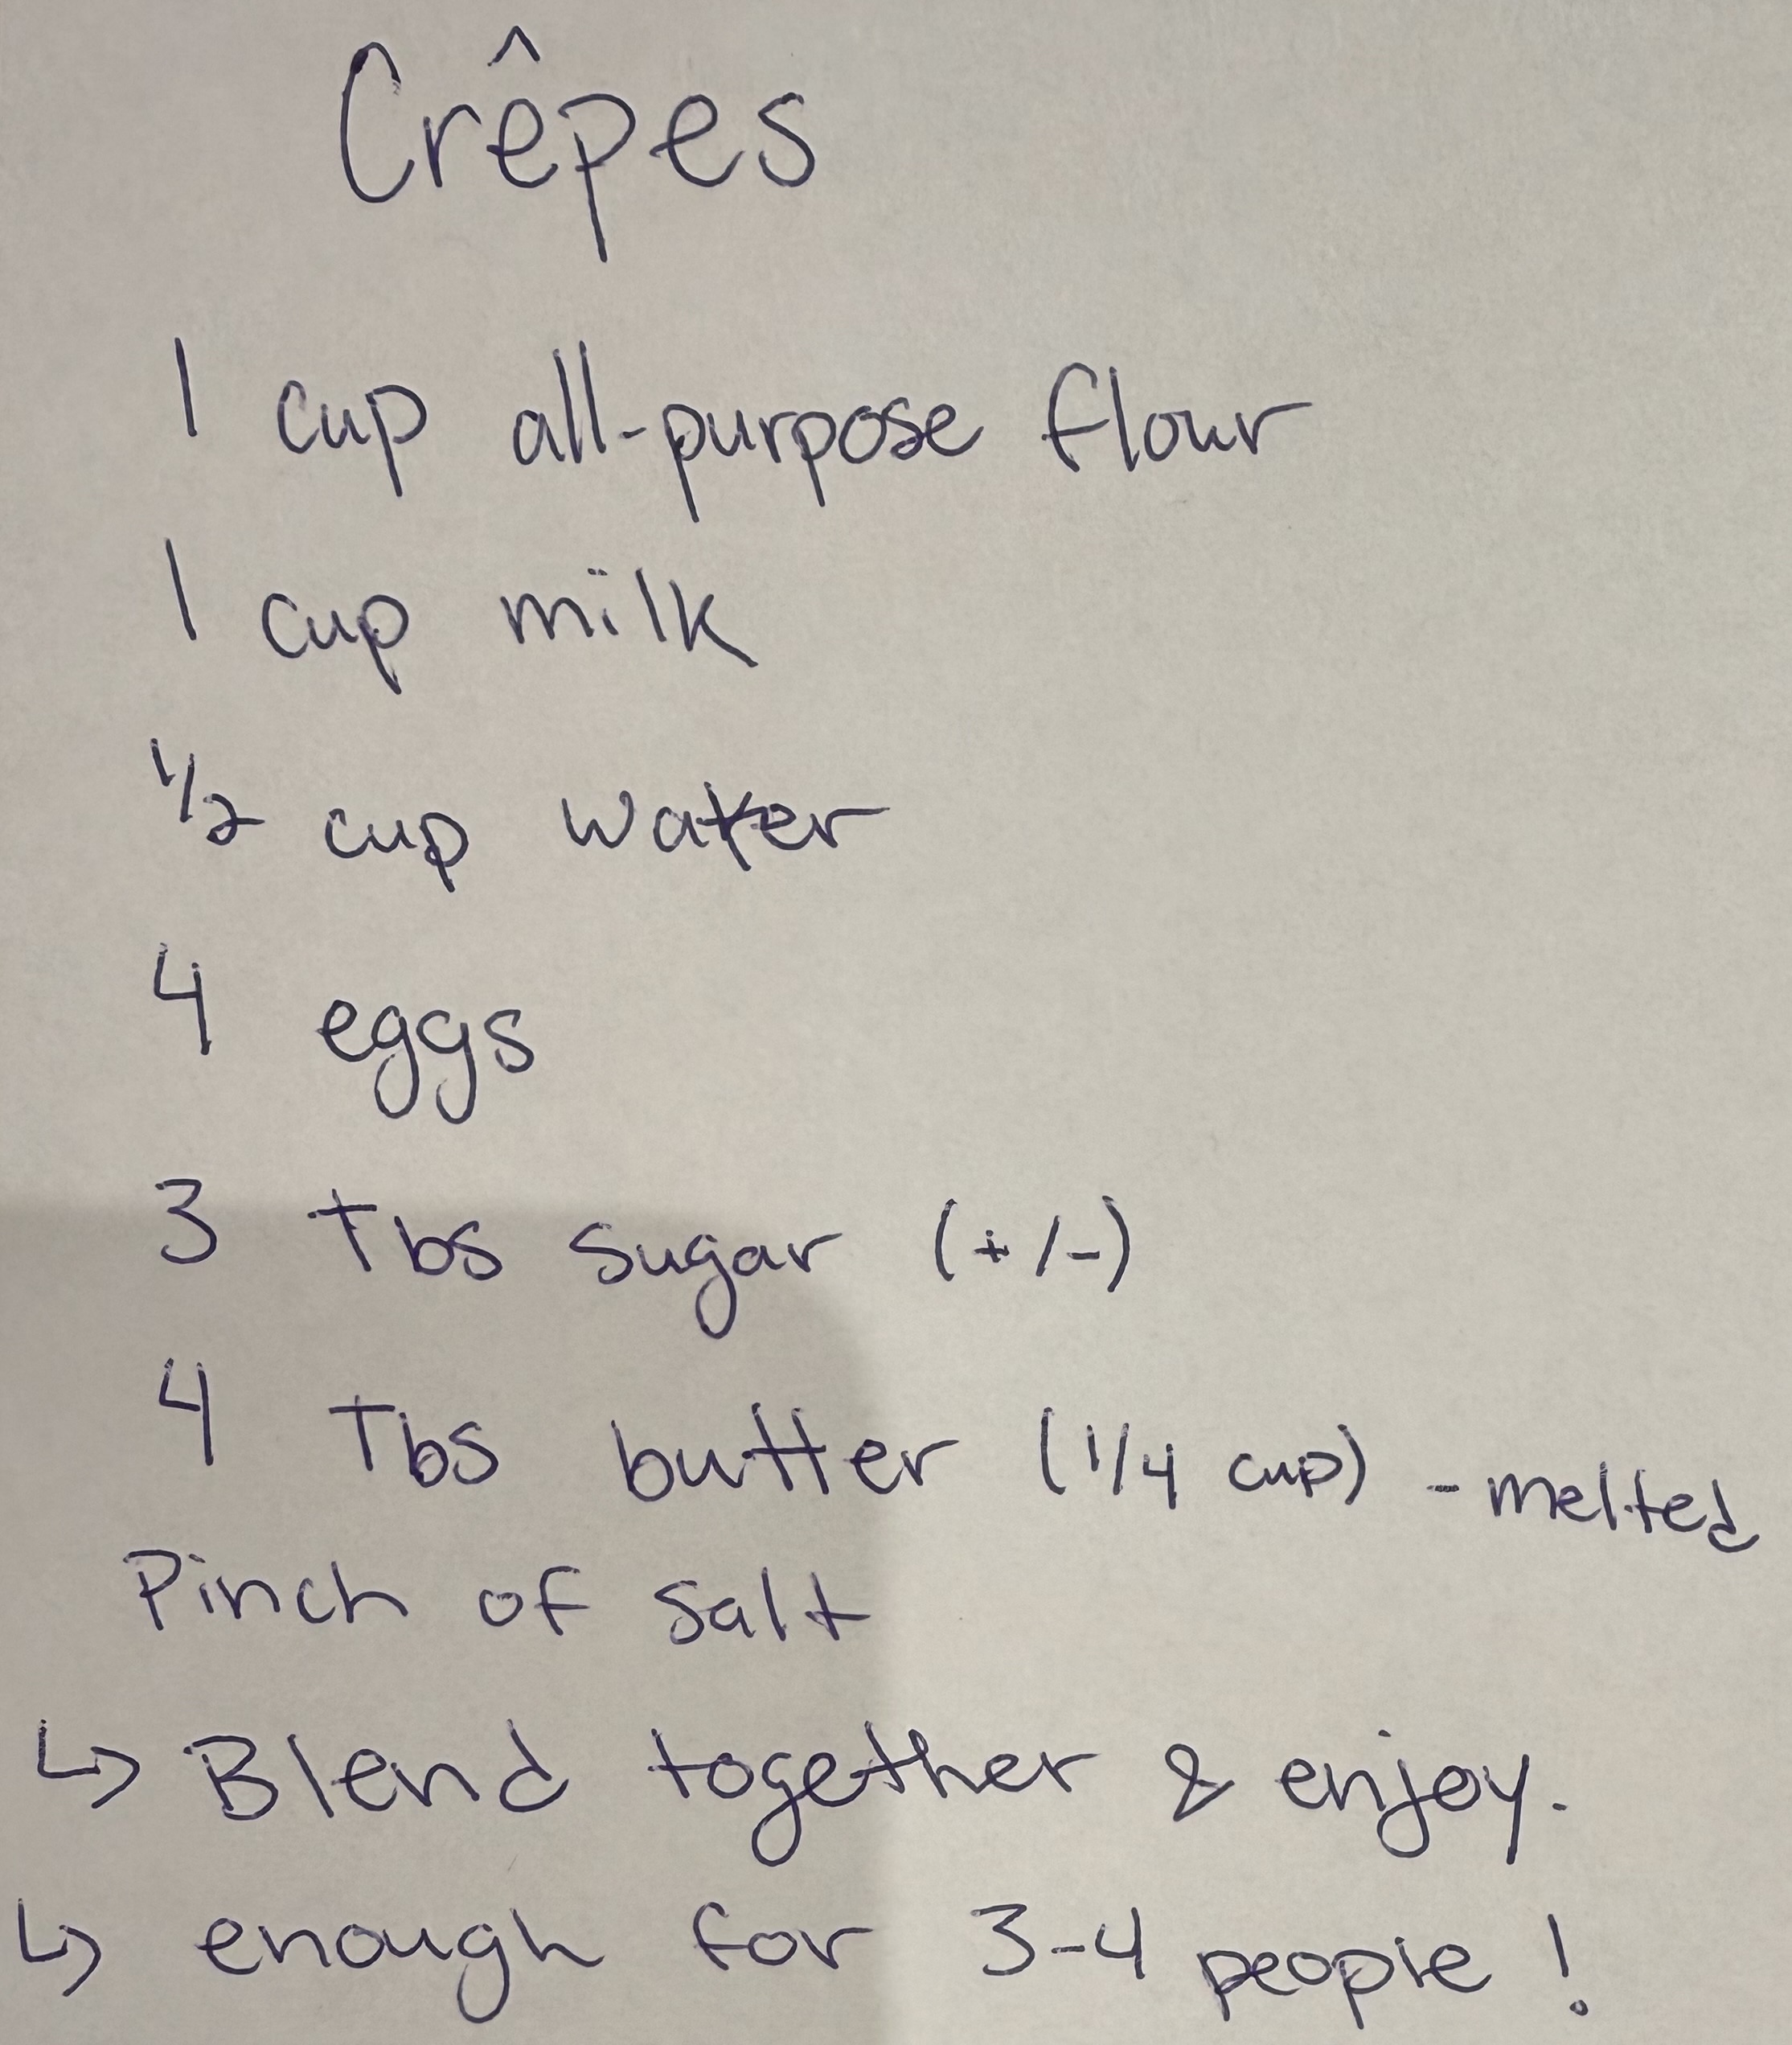 Crêpes
1 cup all-purpose flour
1 cup milk
1/2 cup water
4 eggs
3 Tbs sugar (+/-)
4 Tbs butter (1/4 cup) - melted
Pinch of salt
↳ Blend together & enjoy.
↳ enough for 3-4 people!